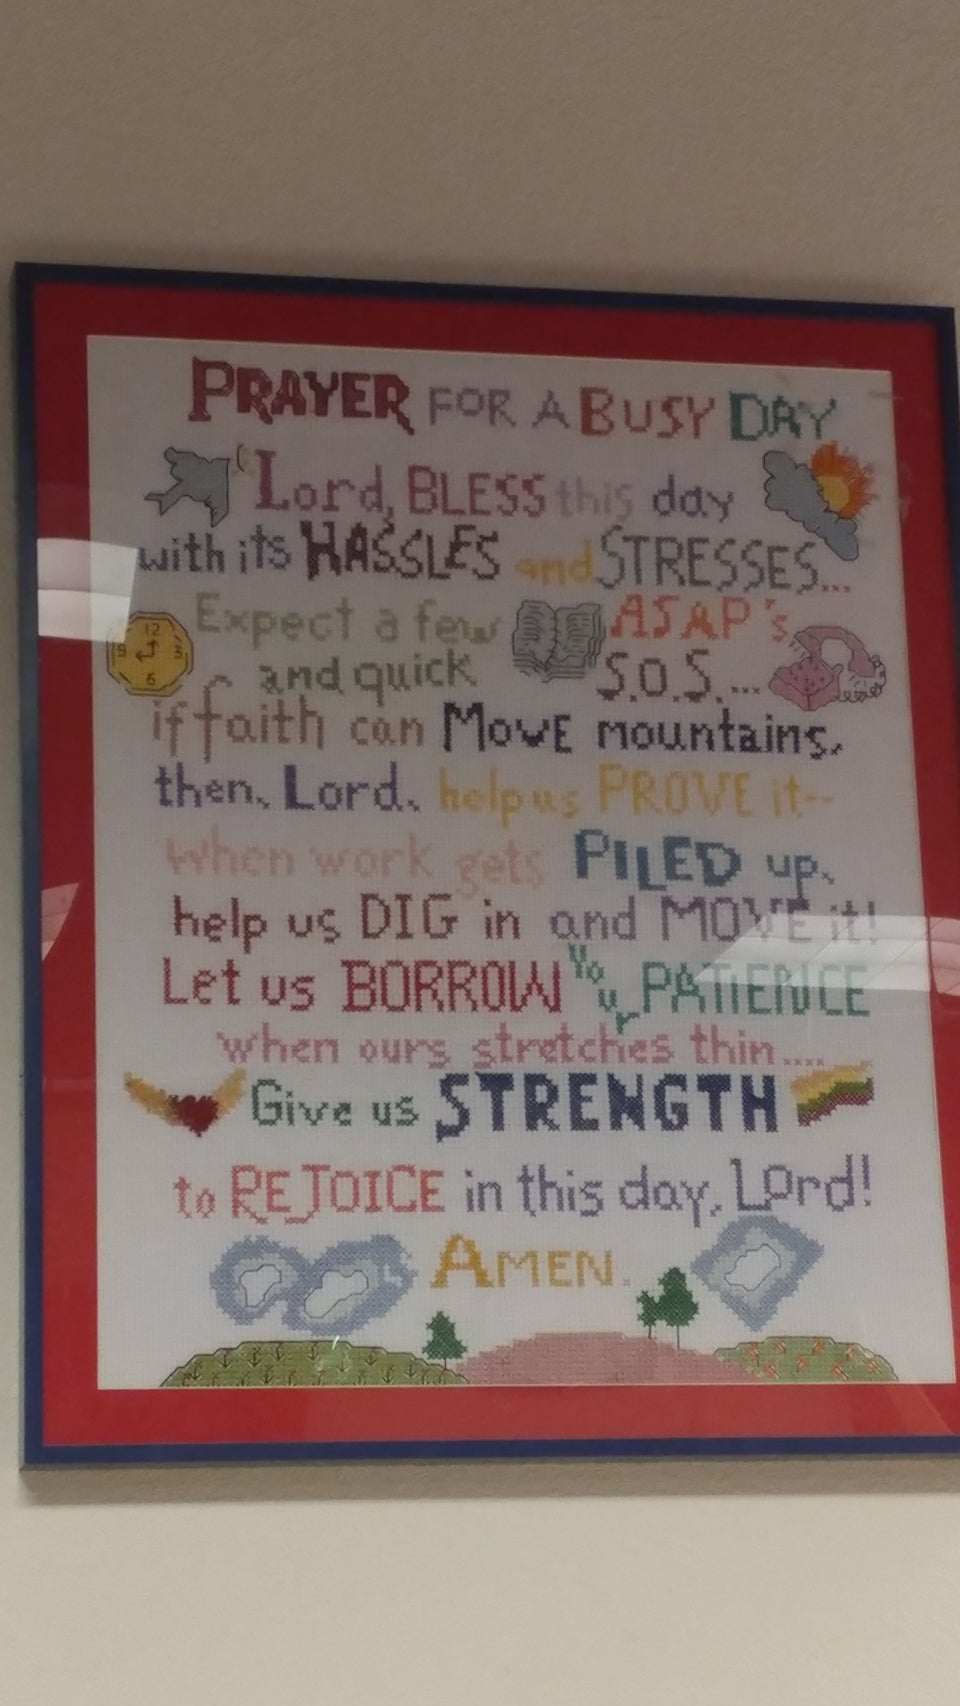 PRAYER FOR A BUSY DAY
"Lord, BLESS this day
with its HASSLES and STRESSES...
Expect a few ASAP's
and quick S.O.S....
if faith can MOVE mountains,
then, Lord, help us PROVE it--
when work gets PILED up,
help us DIG in and MOVE it!
Let us BORROW Your PATIENCE
when ours stretches thin....
Give us STRENGTH
to REJOICE in this day, Lord!
AMEN.
12
9 3
6